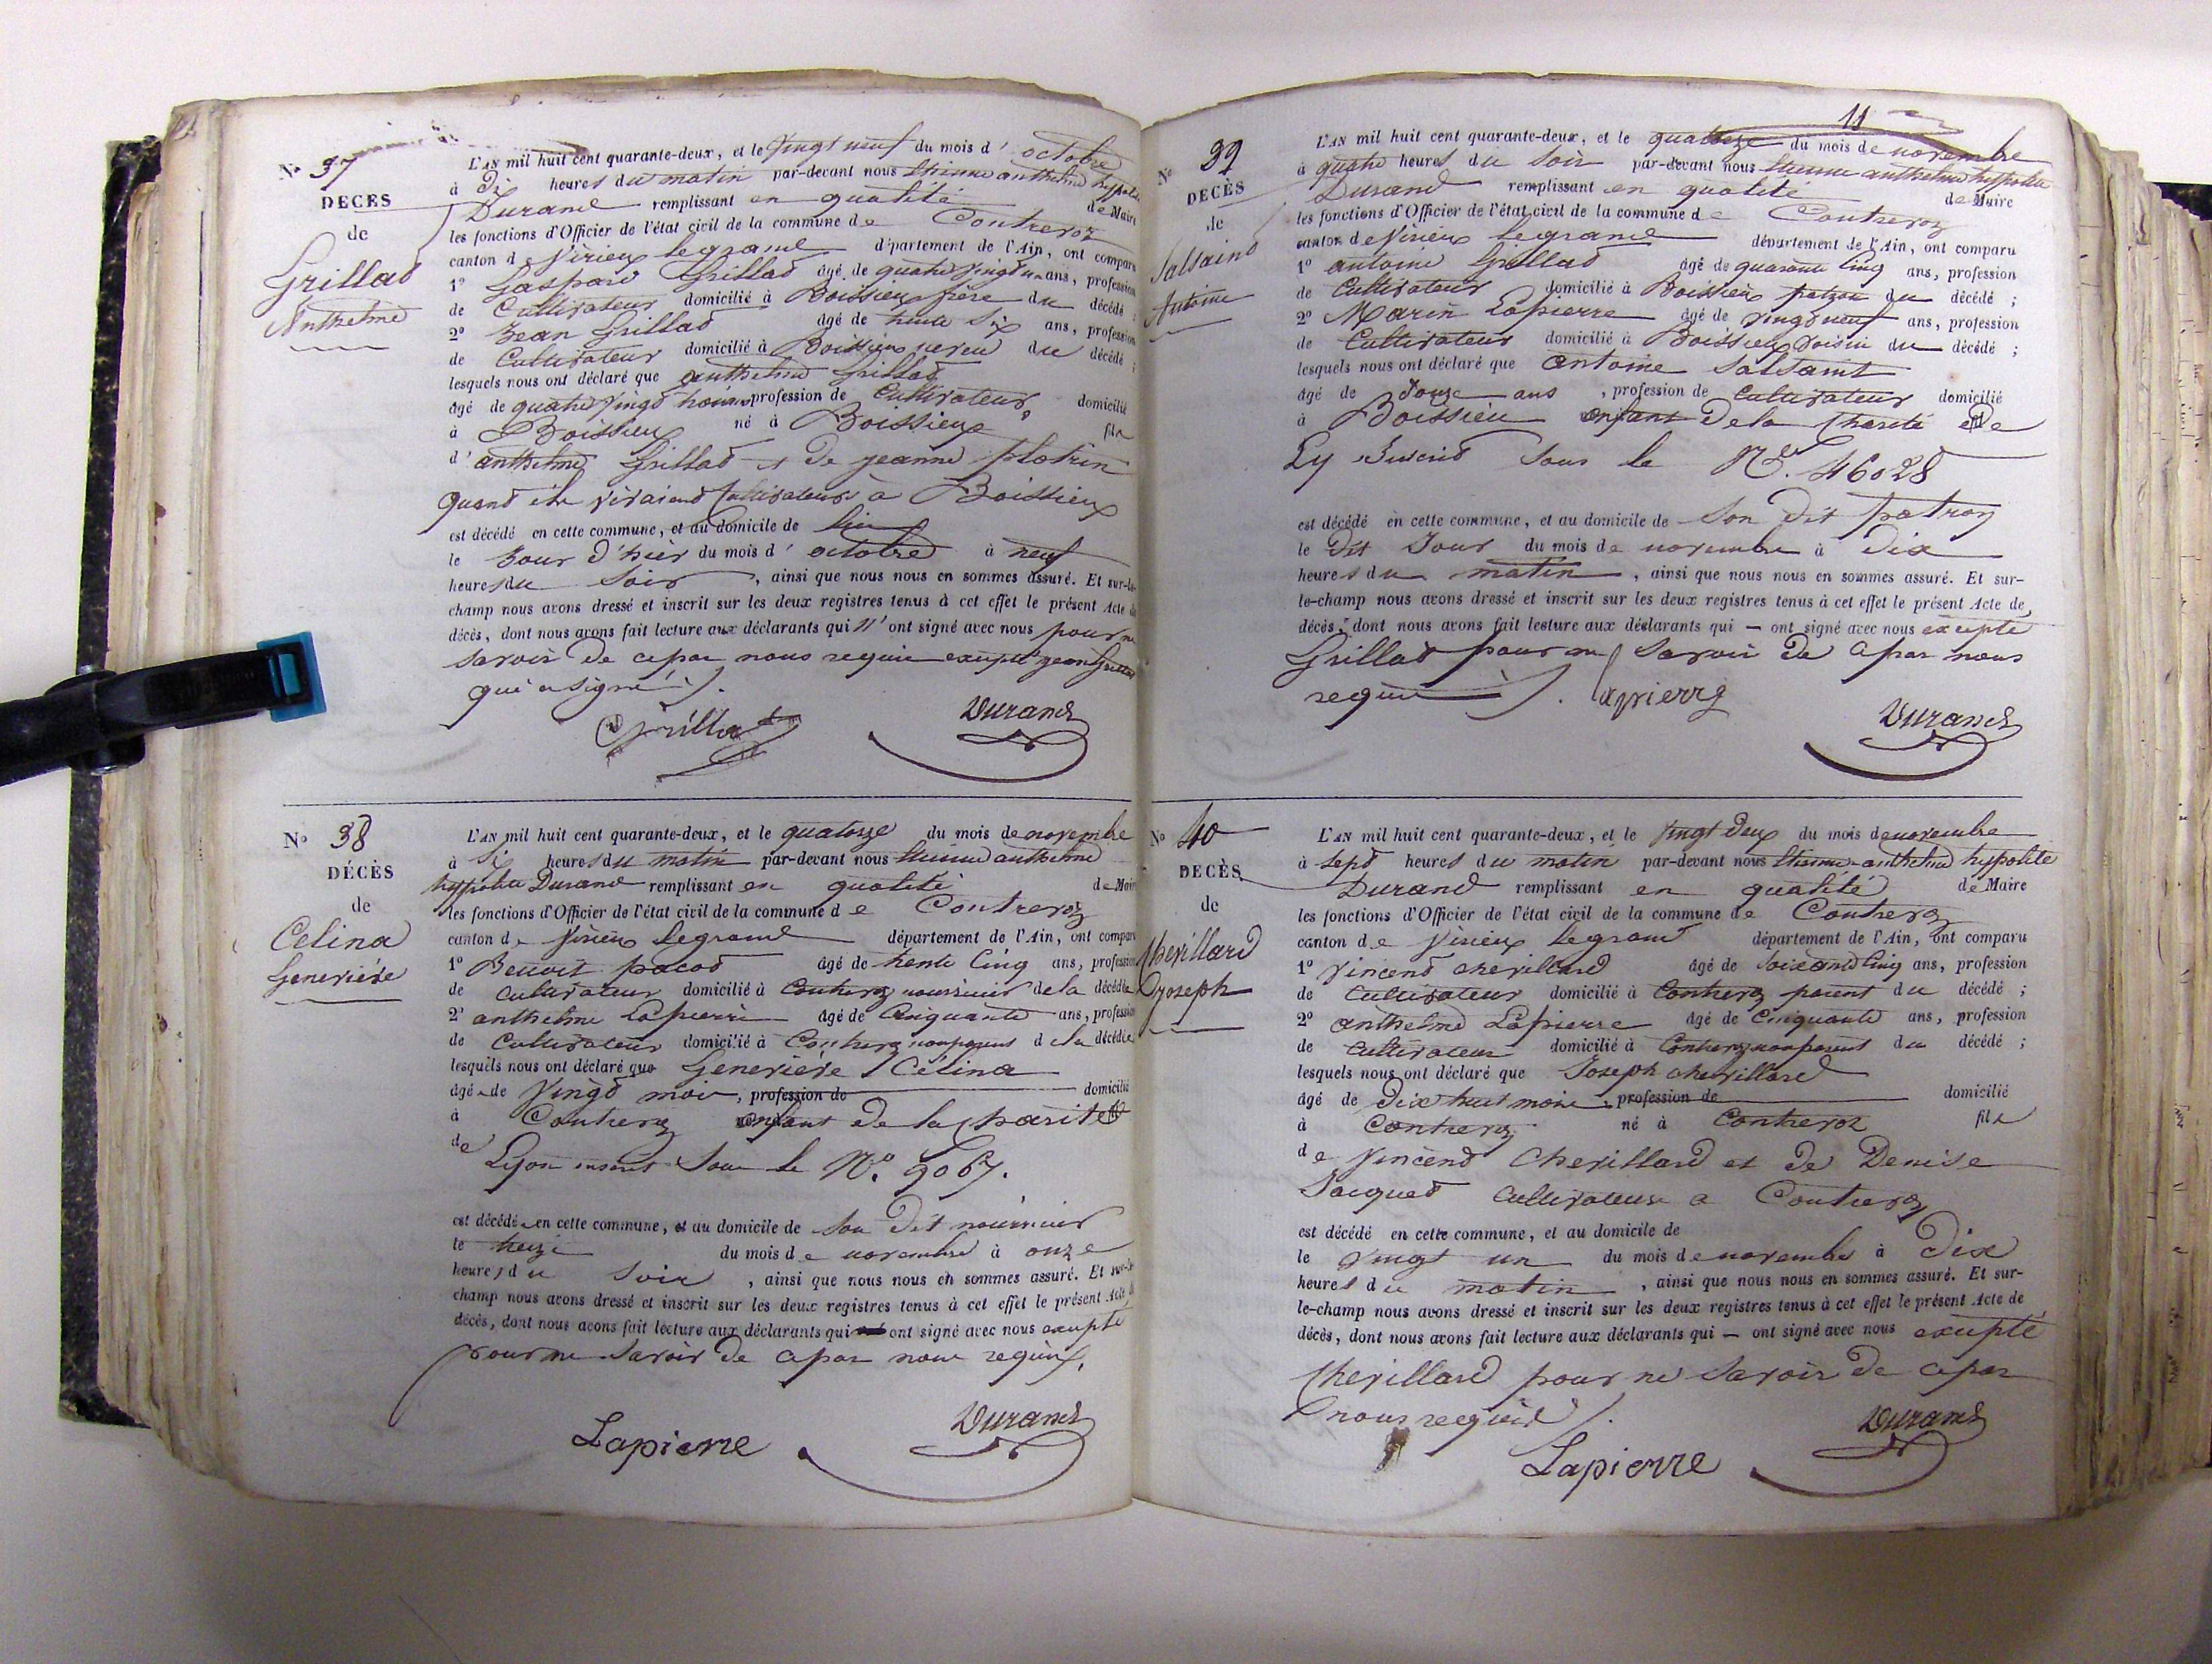 N° 37
DECES
de
Grillad
Anthelme
L'AN mil huit cent quarante-deux, et le vingt neuf du mois d' octobre
à dix heures du matin par-devant nous Etienne anthelme hypolite
Durand remplissant en qualité de Maire
les fonctions d'Officier de l'état civil de la commune de Contrevoz
canton de Virieux legrand département de l'Ain, ont comparu
1° Gaspard Grillad âgé de quatre vingt un ans, profession
de Cultivateur domicilié à Boissieux frère du décédé ;
2° Jean Grillad âgé de trente six ans, profession
de Cultivateur domicilié à Boissieux neveu du décédé ;
lesquels nous ont déclaré que anthelme Grillad
âgé de quatre vingd profession de Cultivateur, domicilié
à Boissieux né à Boissieux fils
d' anthelme Grillad et de jeanne platrin
quand ils vivaient Cultivateurs à Boissieux
est décédé en cette commune, et au domicile de lui
le Jour d'hier du mois d' octobre à neuf
heures du Soir , ainsi que nous nous en sommes assuré. Et sur-le-
champ nous avons dressé et inscrit sur les deux registres tenus à cet effet le présent Acte de
décès, dont nous avons fait lecture aux déclarants qui n'ont signé avec nous pour ne
savoir de ce par nous requis excepté jean Grillad
qui a signé ./.
Grillat Durand
N° 38
DÉCÈS
de
Celina
Generiére
L'AN mil huit cent quarante-deux, et le quatorze du mois de novembre
à Six heures du matin par-devant nous Etienne anthelme
hypolite Durand remplissant en qualité de Maire
les fonctions d'Officier de l'état civil de la commune de Contrevoz
canton de Virieux legrand département de l'Ain, ont comparu
1° Benoit pacod âgé de trente Cinq ans, profession
de cultivateur domicilié à Contrevoz nourricier de la décédée
2° anthelme Lapierre âgé de Cinquante ans, profession
de Cultivateur domicilié à Contrevoz non parent de la décédée
lesquels nous ont déclaré que Generiére Célina
âgée de Vingd mois, profession de domicilié
à Contrevoz enfant de la Charité
de Lyon inscrit Sous le N°. 9067.
est décédée en cette commune, et au domicile de Son Dit nourricier
le treize du mois de novembre à onze
heures du Soir , ainsi que nous nous en sommes assuré. Et sur-le-
champ nous avons dressé et inscrit sur les deux registres tenus à cet effet le présent Acte de
décès, dont nous avons fait lecture aux déclarants qui ont signé avec nous excepté
pour ne Savoir de ce par nous requis.
Lapierre Durand
11
N° 39
DECÈS
de
Salsaind
Antoine
L'AN mil huit cent quarante-deux, et le quatorze du mois de novembre
à quatre heures du Soir par-devant nous Etienne anthelme hypolite
Durand remplissant en qualité de Maire
les fonctions d'Officier de l'état civil de la commune de Contrevoz
canton de Virieux legrand département de l'Ain, ont comparu
1° antoine Grillad âgé de quarante Cinq ans, profession
de Cultivateur domicilié à Boissieux patron du décédé ;
2° Marin Lapierre âgé de vingd neuf ans, profession
de Cultivateur domicilié à Boissieux voisin du décédé ;
lesquels nous ont déclaré que antoine Salsaint
âgé de Douze ans , profession de Cultivateur domicilié
à Boissieu enfant De la Charité de
Ly Sous le N°. 46028
est décédé en cette commune, et au domicile de Son Dit patron
le Dit Jour du mois de novembre à dix
heures du matin , ainsi que nous nous en sommes assuré. Et sur-
le-champ nous avons dressé et inscrit sur les deux registres tenus à cet effet le présent Acte de
décès, dont nous avons fait lecture aux déclarants qui — ont signé avec nous excepté
Grillad pour ne Savoir de ce par nous
requis ./. lapierre
Durand
N° 40
DECÈS
de
Chevillard
Joseph
L'AN mil huit cent quarante-deux, et le vingt Deux du mois de novembre
à Sepd heures du matin par-devant nous Etienne anthelme hypolite
Durand remplissant en qualité de Maire
les fonctions d'Officier de l'état civil de la commune de Contrevoz
canton de Virieux legrand département de l'Ain, ont comparu
1° Vincend chevillard âgé de Soixante Cinq ans, profession
de Cultivateur domicilié à Contrevoz parent du décédé ;
2° anthelme Lapierre âgé de Cinquante ans, profession
de Cultivateur domicilié à Contrevoz non parent du décédé ;
lesquels nous ont déclaré que Joseph chevillard
âgé de Dix huit mois , profession de domicilié
à Contrevoz né à Contrevoz fils
de Vincend Chevillard et de Denise
Jacqued Cultivateurs a Contrevoz
est décédé en cette commune, et au domicile de
le vingt un du mois de novembre à Dix
heures du matin , ainsi que nous nous en sommes assuré. Et sur-
le-champ nous avons dressé et inscrit sur les deux registres tenus à cet effet le présent Acte de
décès, dont nous avons fait lecture aux déclarants qui — ont signé avec nous excepté
Chevillard pour ne Savoir de ce par
nous requis ./.
Lapierre Durand